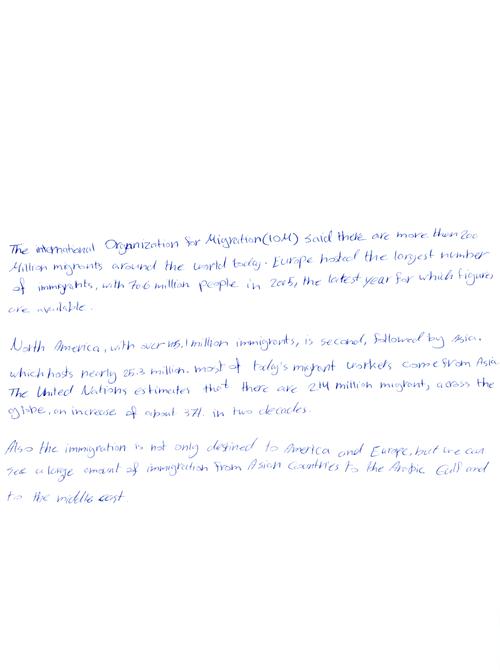 The international Organization for Migration(IOM) said there are more than 200
Million migrants around the world today. Europe hosted the largest number
of immigrants, with 70.6 million people in 2005, the latest year for which figures
are available.
North America, with over 45.1 million immigrants, is second, followed by Asia.
which hosts nearly 25.3 million. most of today's migrant workers come from Asia
The United Nations estimates that there are 214 million migrant, across the
globe, an increase of about 37%. in two decades.
Also the immigration is not only destined to America and Europe, but we can
see a large amount of immigration from Asian Countries to the Arabic Gulf and
to the middle east.